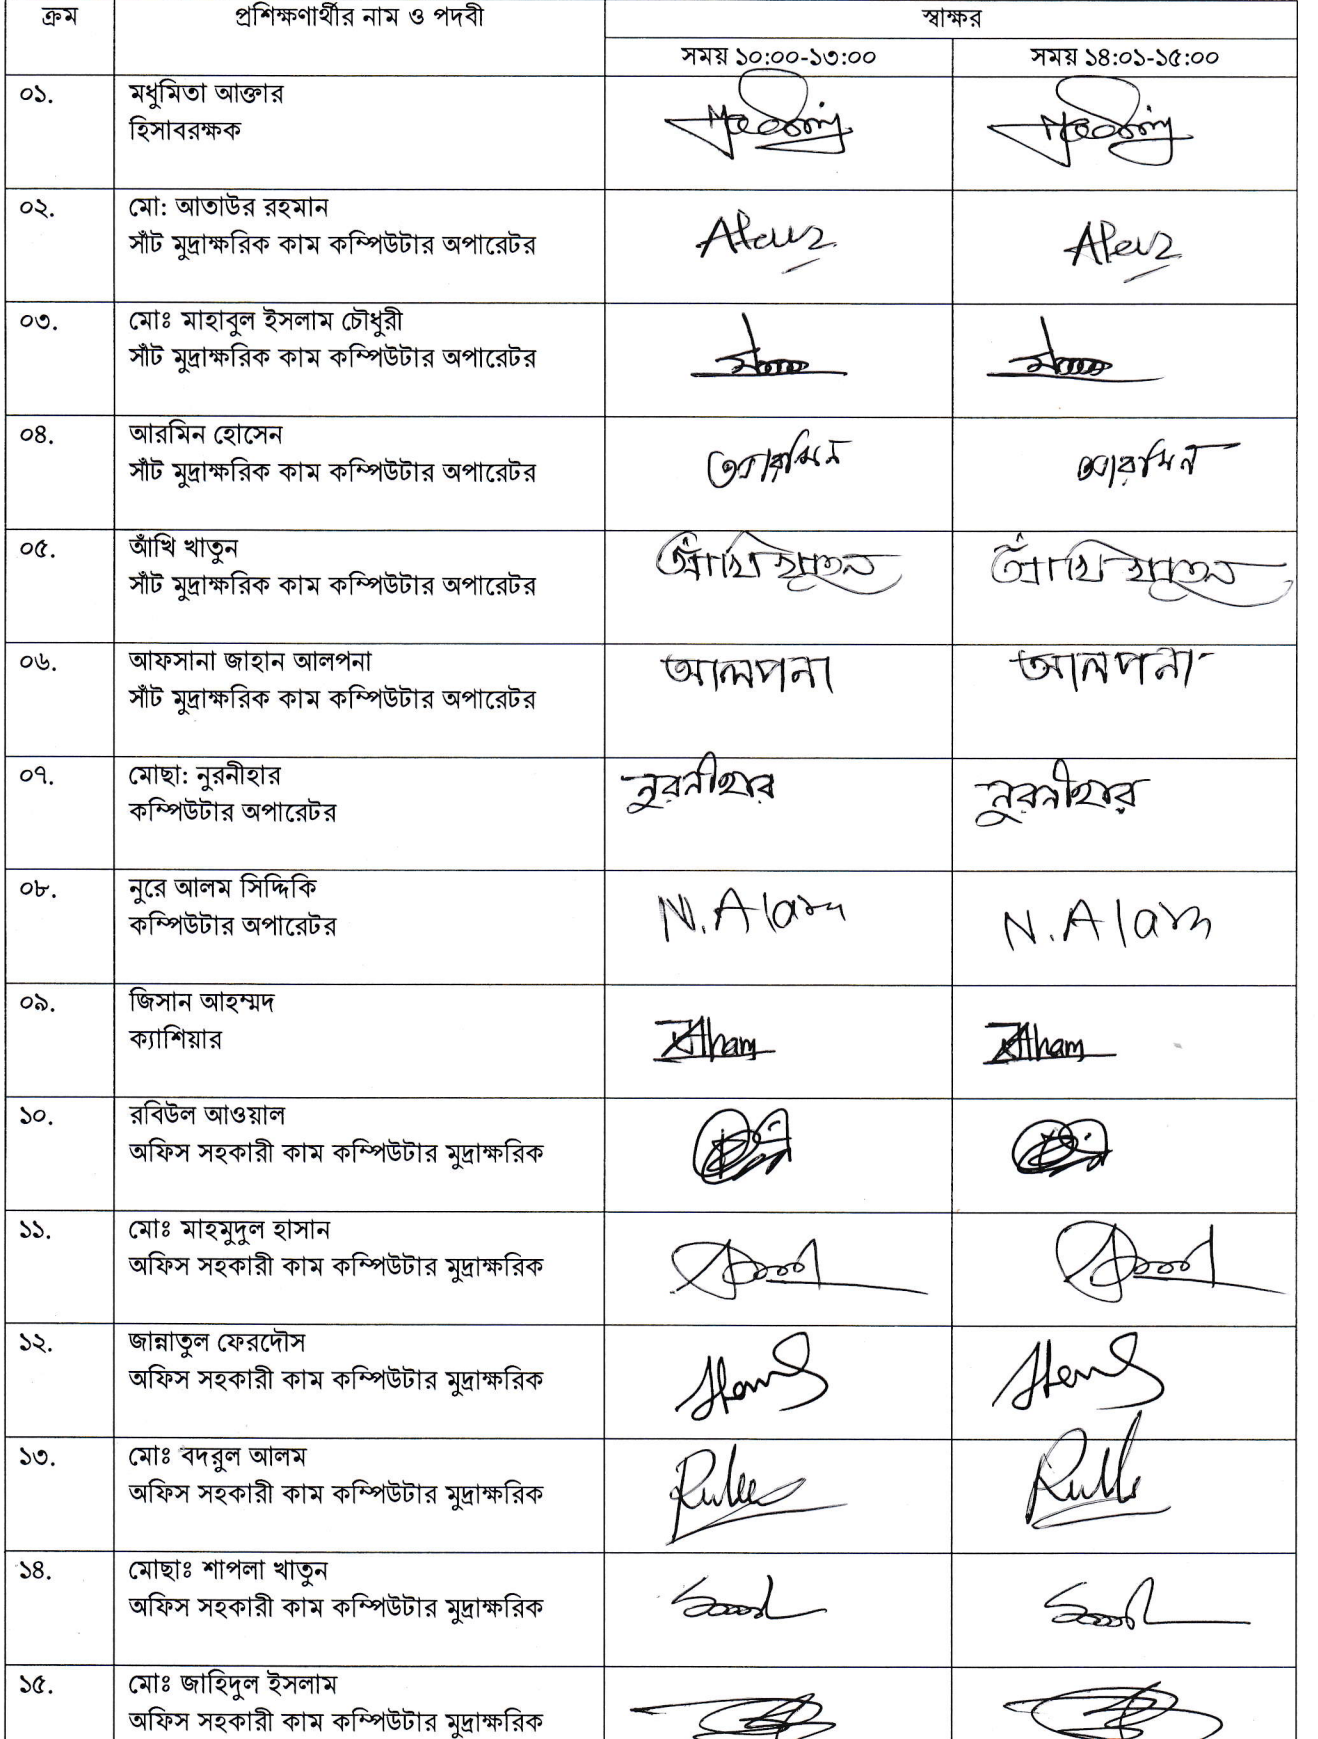 ক্রম প্রশিক্ষণার্থীর নাম ও পদবী স্বাক্ষর
সময় ১০:০০-১৩:০০ সময় ১৪:০১-১৫:০০
০১. মধুমিতা আক্তার
হিসাবরক্ষক
০২. মো: আতাউর রহমান
সাঁট মুদ্রাক্ষরিক কাম কম্পিউটার অপারেটর
০৩. মোঃ মাহাবুল ইসলাম চৌধুরী
সাঁট মুদ্রাক্ষরিক কাম কম্পিউটার অপারেটর
০৪. আরমিন হোসেন আরমিন আরমিন
সাঁট মুদ্রাক্ষরিক কাম কম্পিউটার অপারেটর
০৫. আঁখি খাতুন আঁখি খাতুন আঁখি খাতুন
সাঁট মুদ্রাক্ষরিক কাম কম্পিউটার অপারেটর
০৬. আফসানা জাহান আলপনা আলপনা আলপনা
সাঁট মুদ্রাক্ষরিক কাম কম্পিউটার অপারেটর
০৭. মোছা: নুরনীহার নুরনীহার নুরনীহার
কম্পিউটার অপারেটর
০৮. নুরে আলম সিদ্দিকি N. Alam N. Alam
কম্পিউটার অপারেটর
০৯. জিসান আহম্মদ
ক্যাশিয়ার
১০. রবিউল আওয়াল
অফিস সহকারী কাম কম্পিউটার মুদ্রাক্ষরিক
১১. মোঃ মাহমুদুল হাসান
অফিস সহকারী কাম কম্পিউটার মুদ্রাক্ষরিক
১২. জান্নাতুল ফেরদৌস
অফিস সহকারী কাম কম্পিউটার মুদ্রাক্ষরিক
১৩. মোঃ বদরুল আলম
অফিস সহকারী কাম কম্পিউটার মুদ্রাক্ষরিক
১৪. মোছাঃ শাপলা খাতুন
অফিস সহকারী কাম কম্পিউটার মুদ্রাক্ষরিক
১৫. মোঃ জাহিদুল ইসলাম
অফিস সহকারী কাম কম্পিউটার মুদ্রাক্ষরিক